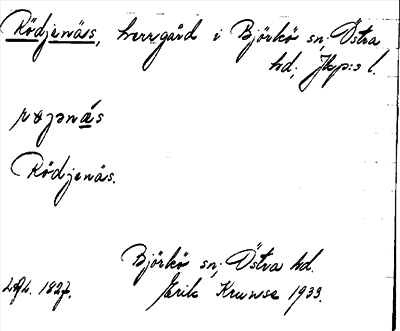 Rödjenäss, herrgård i Björkö sn; Östra
hd; Jkp:s l.
røjənás
Rödjenäs.
Björkö sn; Östra hd.
1827. Erik Krunse 1933.